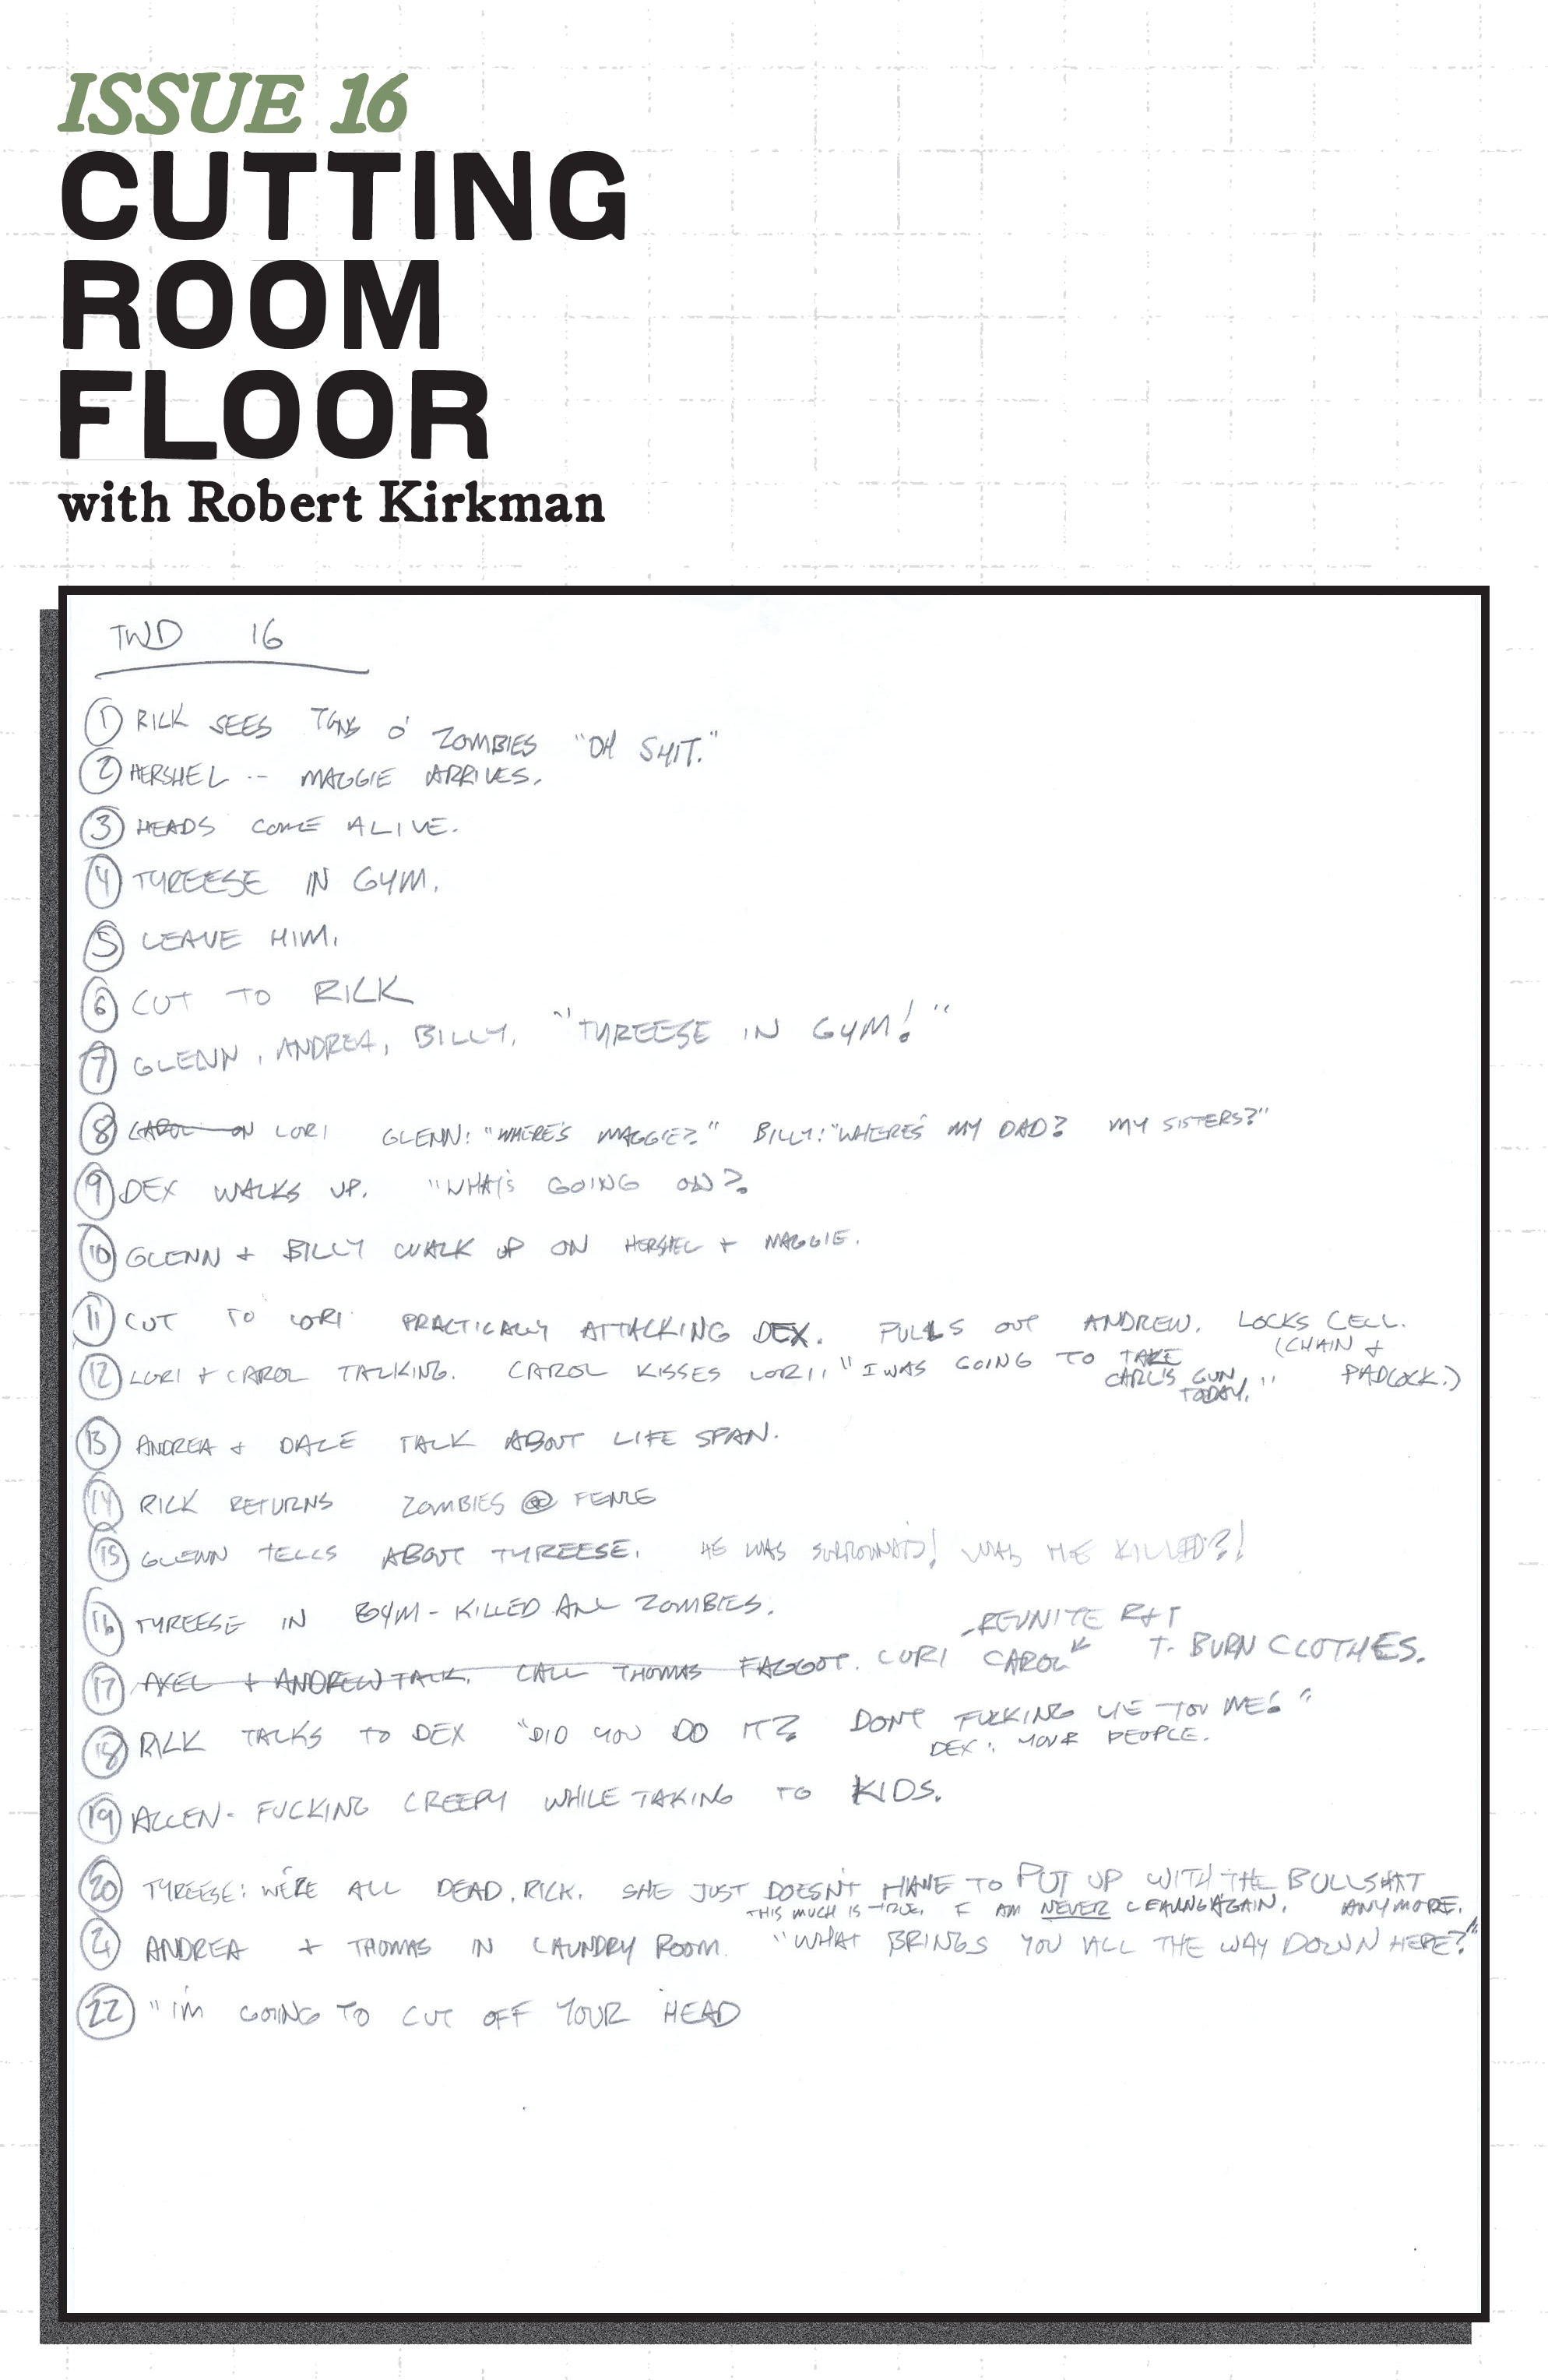 ISSUE 16
CUTTING
ROOM
FLOOR
with Robert Kirkman
TWD 16
① RICK SEES TONS O' ZOMBIES "OH SHIT."
② HERSHEL -- MAGGIE ARRIVES.
③ HEADS COME ALIVE.
④ TYREESE IN GYM.
⑤ LEAVE HIM.
⑥ CUT TO RICK
⑦ GLENN, ANDREA, BILLY, "TYREESE IN GYM!"
⑧ CAROL ON LORI GLENN: "WHERE'S MAGGIE?" BILLY: "WHERE'S MY DAD? MY SISTERS?"
⑨ DEX WALKS UP. "WHAT'S GOING ON?
⑩ GLENN + BILLY WALK UP ON HERSHEL + MAGGIE.
⑪ CUT TO LORI PRACTICALLY ATTACKING DEX. PULLS OUT ANDREW. LOCKS CELL.
(CHAIN + PADLOCK.)
⑫ LORI + CAROL TALKING. CAROL KISSES LORI. "I WAS GOING TO TAKE
CARL'S GUN
TODAY."
⑬ ANDREA + DALE TALK ABOUT LIFE SPAN.
⑭ RICK RETURNS ZOMBIES @ FENCE
⑮ GLENN TELLS ABOUT TYREESE. HE WAS SURROUNDED! WAS HE KILLED?!
⑯ TYREESE IN GYM - KILLED ALL ZOMBIES.
- REUNITE R+T
⑰ AXEL + ANDREW TALK. CALL THOMAS FAGGOT. LORI CAROL T. BURN CLOTHES.
⑱ RICK TALKS TO DEX "DID YOU DO IT? DON'T FUCKING LIE TO ME!"
DEX: YOUR PEOPLE.
⑲ ALLEN - FUCKING CREEPY WHILE TAKING TO KIDS.
⑳ TYREESE: WE'RE ALL DEAD, RICK. SHE JUST DOESN'T HAVE TO PUT UP WITH THE BULLSHIT
THIS MUCH IS TRUE. I AM NEVER AGAIN. ANYMORE.
㉑ ANDREA + THOMAS IN LAUNDRY ROOM. "WHAT BRINGS YOU ALL THE WAY DOWN HERE?"
㉒ "I'M GOING TO CUT OFF YOUR HEAD